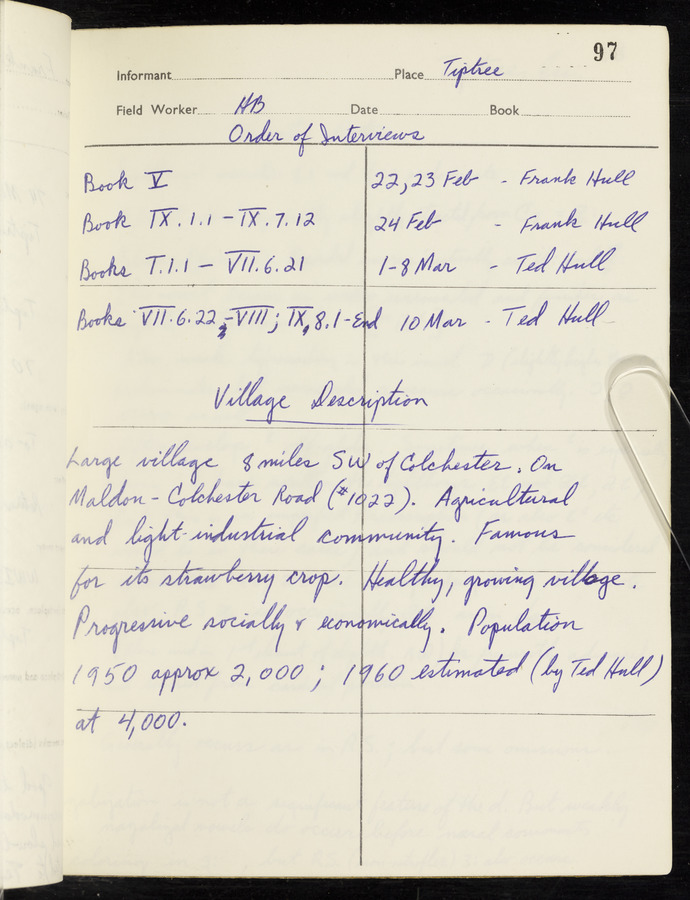 97
Informant Place Tiptree
Field Worker HB Date Book
Order of Interviews
Book V 22, 23 Feb - Frank Hull
Book IX.1.1 - IX.7.12 24 Feb - Frank Hull
Books I.1.1 - VII.6.21 1-8 Mar - Ted Hull
Books VII.6.22,-VIII; IX,8.1-End 10 Mar - Ted Hull
Village Description
Large village 8 miles SW of Colchester. On
Maldon - Colchester Road (#1022). Agricultural
and light-industrial community. Famous
for its strawberry crop. Healthy, growing village.
Progressive socially & economically. Population
1950 approx 2,000; 1960 estimated (by Ted Hull)
at 4,000.